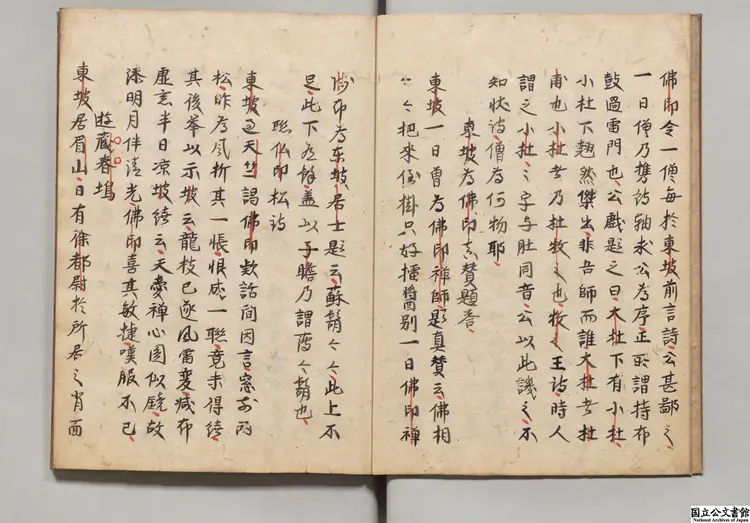 佛印令一僧每於東坡前言詩公甚鄙之
一日僧乃携詩軸求公為序正所謂持布
鼓過雷門也公戲題之曰大杜下有小杜
小杜下翹然傑出非吾師而誰大杜者杜
甫也小杜者乃杜牧之也牧之王詩時人
謂之小杜之字与肚同音公以此譏之不
知状詩僧為何物耶
東坡為佛印真賛題答
東坡一日曽為佛印禅師題真賛云佛相
佛相把來倒掛只好擂醬别一日佛印禅
師亦為东坡居士題云蘇鬍々々此上不
足此下有餘盖以子瞻乃謂蘇鬍也
聮仏印松詩
東坡過天竺謁佛印欵話間因言窓前両
松昨為風折其一悵恨成一聮竟未得續
其後举以示坡云龍枝已逐風雷変减却
虚窓半日凉坡續云天愛禅心圓似鏡故
添明月伴清光佛印喜其敏捷嘆服不已
遊蔵春塢
東坡居眉山日有徐都尉於所居之肖西
国立公文書館
National Archives of Japan